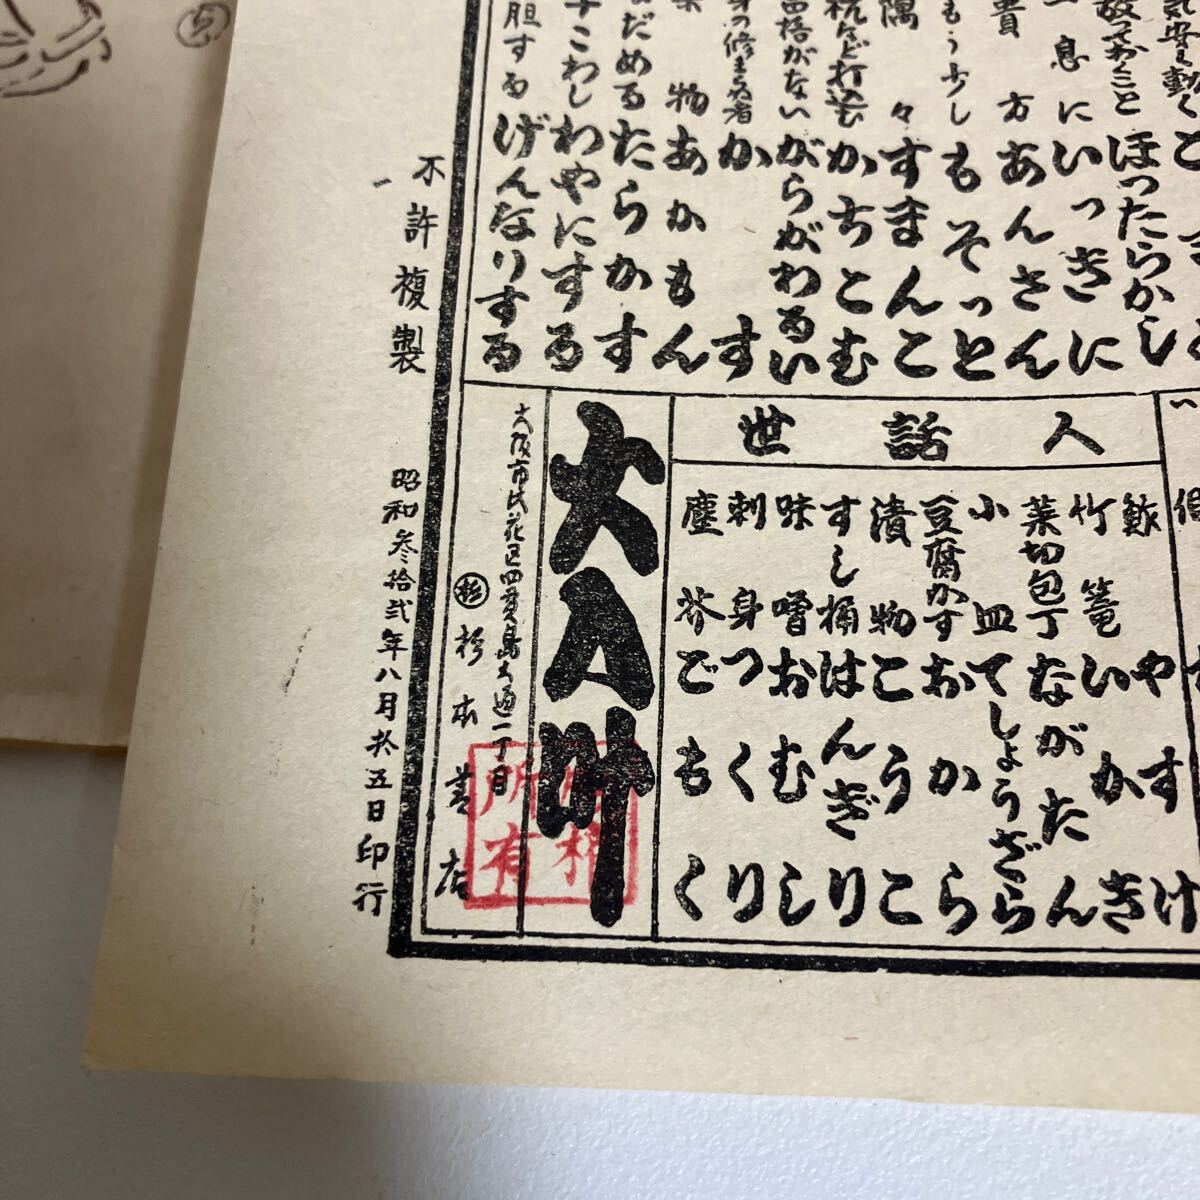 気安く動く
放っておくこと ほったらかし
一息に いっきに
貴方 あんさん
もう少し もそっと
隅々 すまんこ
杭など打込む かちこむ
品格がない がらがわるい
身の修まらぬ者 かす
物 あかもん
だめる たらかす
こわし わやにする
胆する げんなりする
世話人
鮓 やすけ
竹篭 いかき
菜切包丁 ながたん
小皿 てしょうざら
豆腐かす おから
漬物 こうこ
すし桶 はんぎり
味噌 おむし
刺身 つくり
塵芥 ごもく
大入叶
大阪市此花区四貫島大通一丁目
杉 杉本書店
所有
不許複製
昭和参拾弐年八月拾五日印行